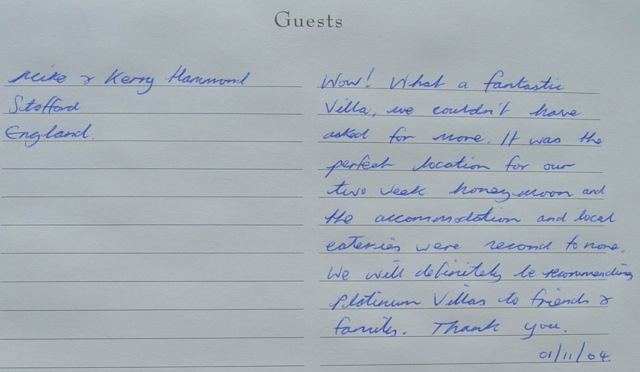 Guests
Mike & Kerry Hammond
Stafford
England.
Wow! What a fantastic
Villa, we couldn't have
asked for more. It was the
perfect location for our
two week honeymoon and
the accommodation and local
eateries were second to none.
We will definitely be recommending
Platinum Villas to friends &
families. Thank you.
01/11/04